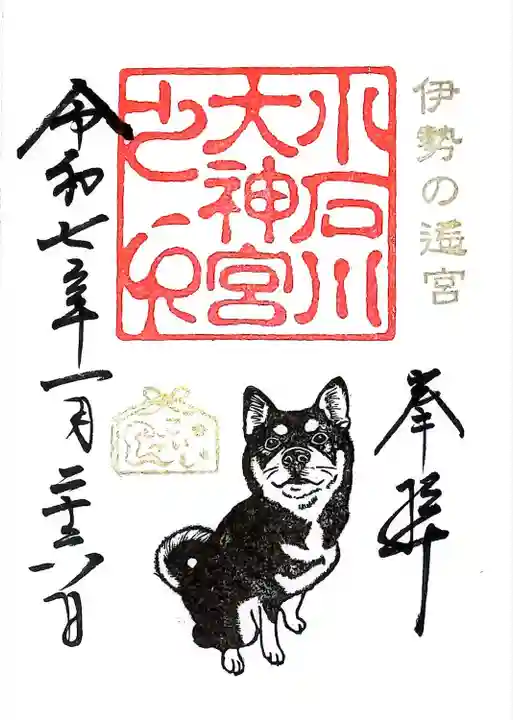 伊勢の遙宮
奉拝
小石川
大神宮
之印
令和七年一月二十六日